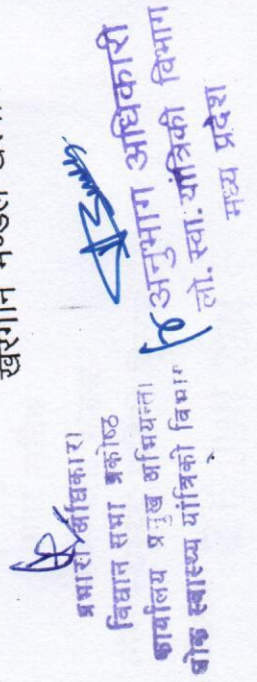 खरगोन मण्डल
प्रभारी अधिकारी
विधान सभा प्रकोष्ठ
कार्यालय प्रमुख अभियन्ता
लोक स्वास्थ्य यांत्रिकी विभाग
अनुभाग अधिकारी
लो. स्वा. यांत्रिकी विभाग
मध्य प्रदेश